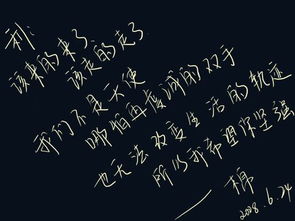 该来的来了
该走的走了
我们不是天使
哪怕再虔诚的双手
也无法改变生活的轨迹
所以我希望你坚强
2008.6.24